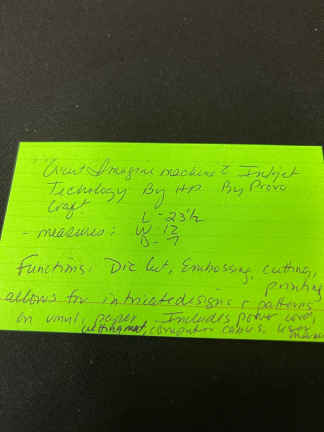 Cricut Imagine machine Inkjet
Technology By H.P. By Provo
Craft
L - 23½
- measures: W 12
D - 7
Functions: Die Cut, Embossing, cutting,
printing
allows for intricate designs & patterns
on vinyl, paper. Includes power cord,
cutting mat, computer cables, user